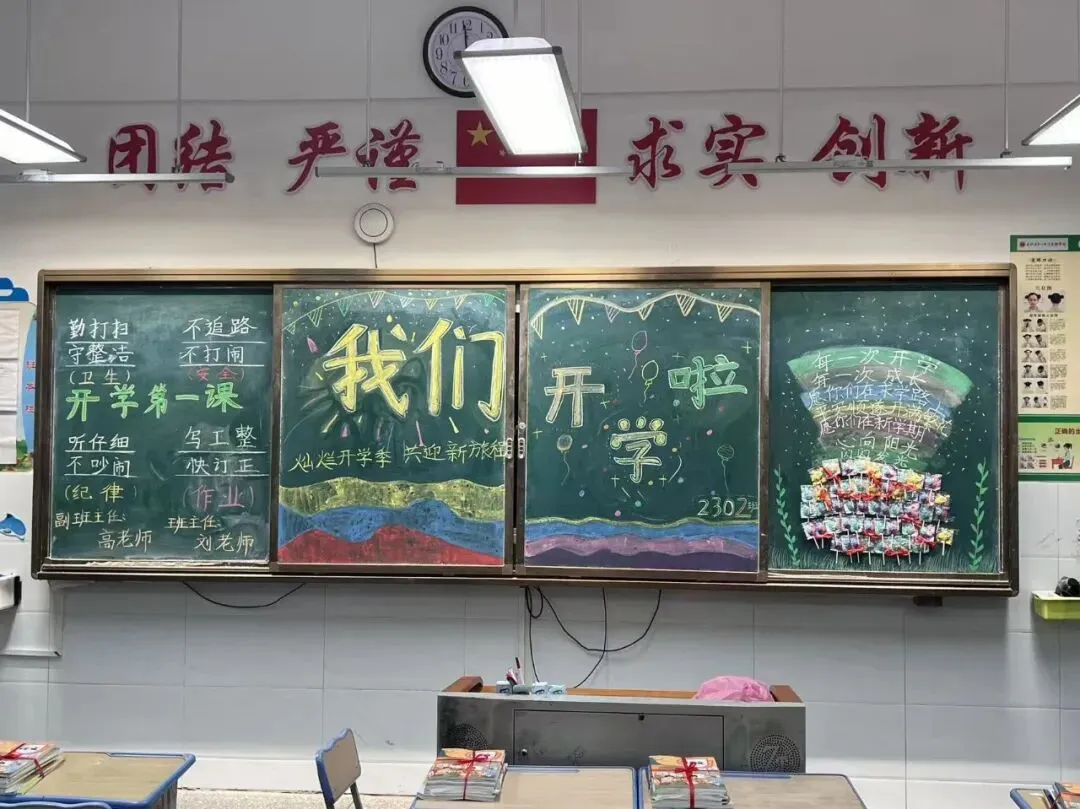 团结 严谨 求实 创新
勤打扫 不追路
守整洁 不打闹
(卫生) (安全)
开学第一课
听仔细 写工整
不吵闹 快订正
(纪律) (作业)
副班主任: 班主任:
高老师 刘老师
我们
灿烂开学季 共迎新旅程
开学啦
2302班
每一次开学
每一次成长
愿你们在求学路上
愿你们在新学期
心向阳光